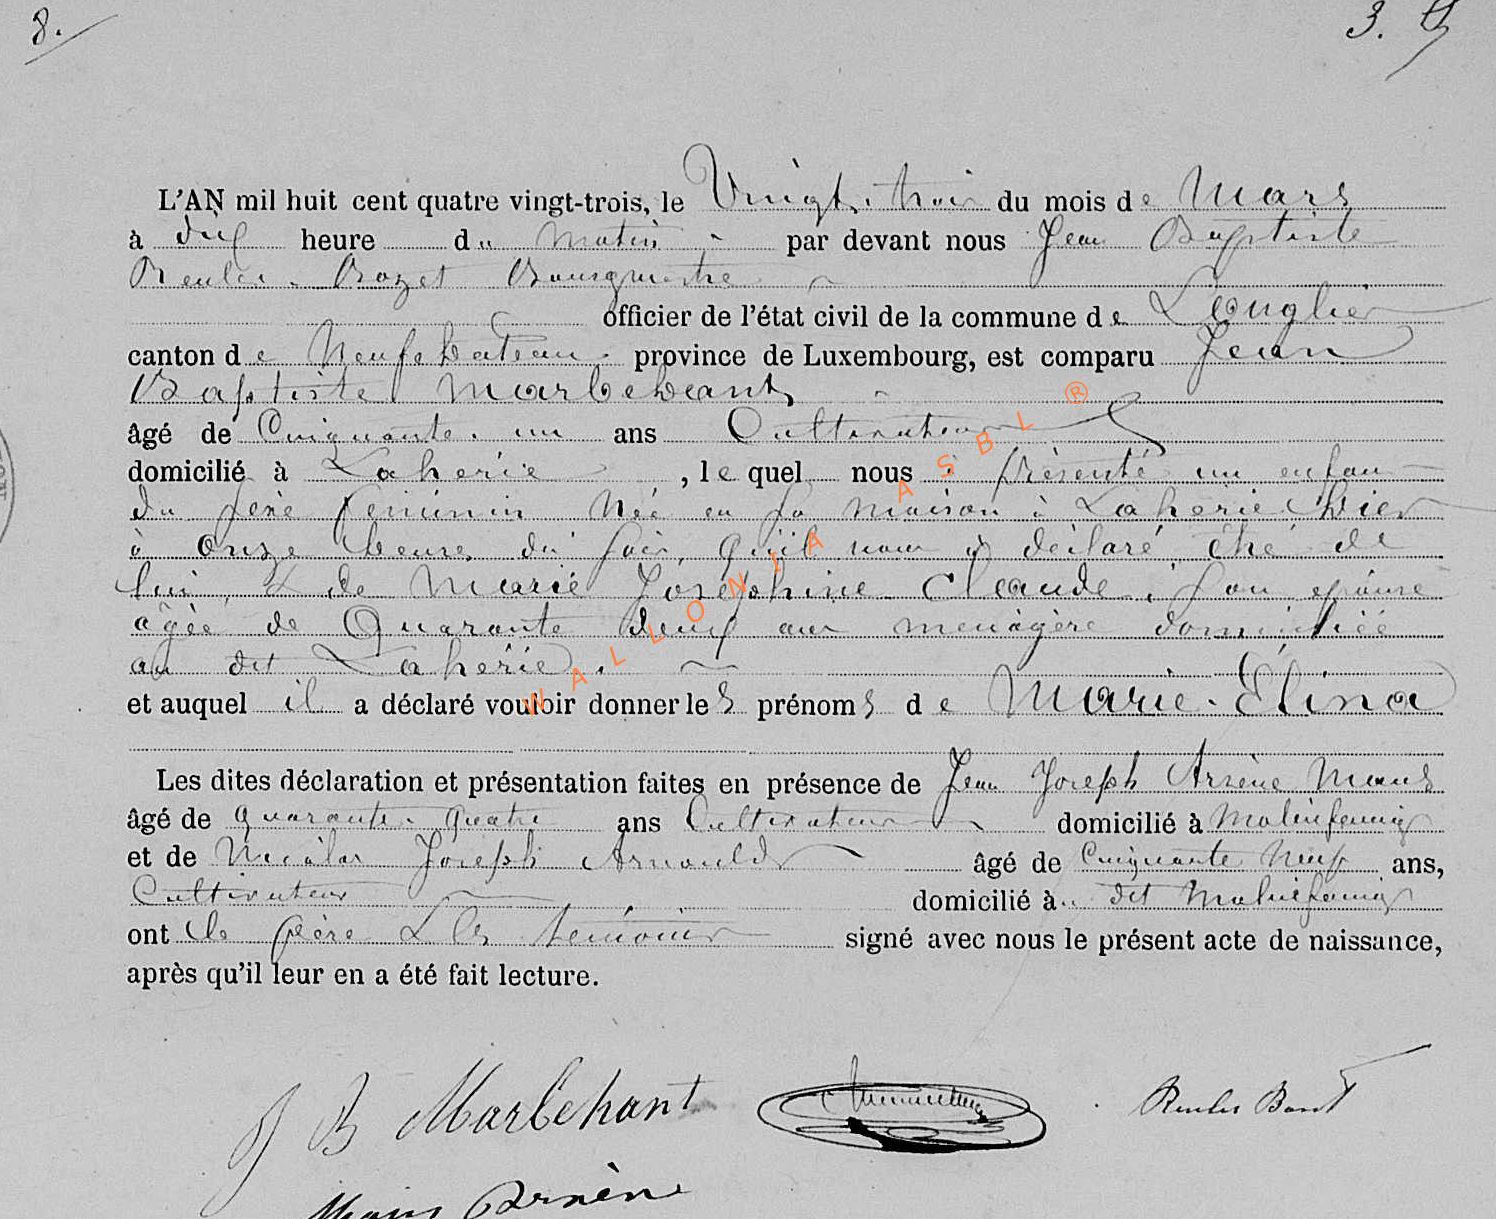 8.
3.
L'AN mil huit cent quatre vingt-trois, le Vingt-trois du mois de Mars
à dix heure du matin par devant nous Jean Baptiste
Reuler-Bozet Bourgmestre
officier de l'état civil de la commune de Longlier
canton de Neufchateau province de Luxembourg, est comparu Jean
Baptiste Marbehant
âgé de Cinquante-un ans Cultivateur
domicilié à Laherie, lequel nous présenté un enfan
du sexe feminin Née en sa maison à Laherie hier
à onze heures du soir qu'il nous a déclaré être de
lui & de Marie Joséphine Claude, son epouse
âgée de Quarante deux ans menagère domiciliée
au dit Laherie.
et auquel il a déclaré vouloir donner les prénoms de Marie-Elina
Les dites déclaration et présentation faites en présence de Jean Joseph Arsène Maus
âgé de quarante-quatre ans Cultivateur domicilié à Molinfaing
et de Nicolas Joseph Arnould âgé de Cinquante Neuf ans,
Cultivateur domicilié à dit Molinfaing
ont le père & les témoins signé avec nous le présent acte de naissance,
après qu'il leur en a été fait lecture.
J B Marbehant
Maus Arsène
WALLONIA ASBL ®